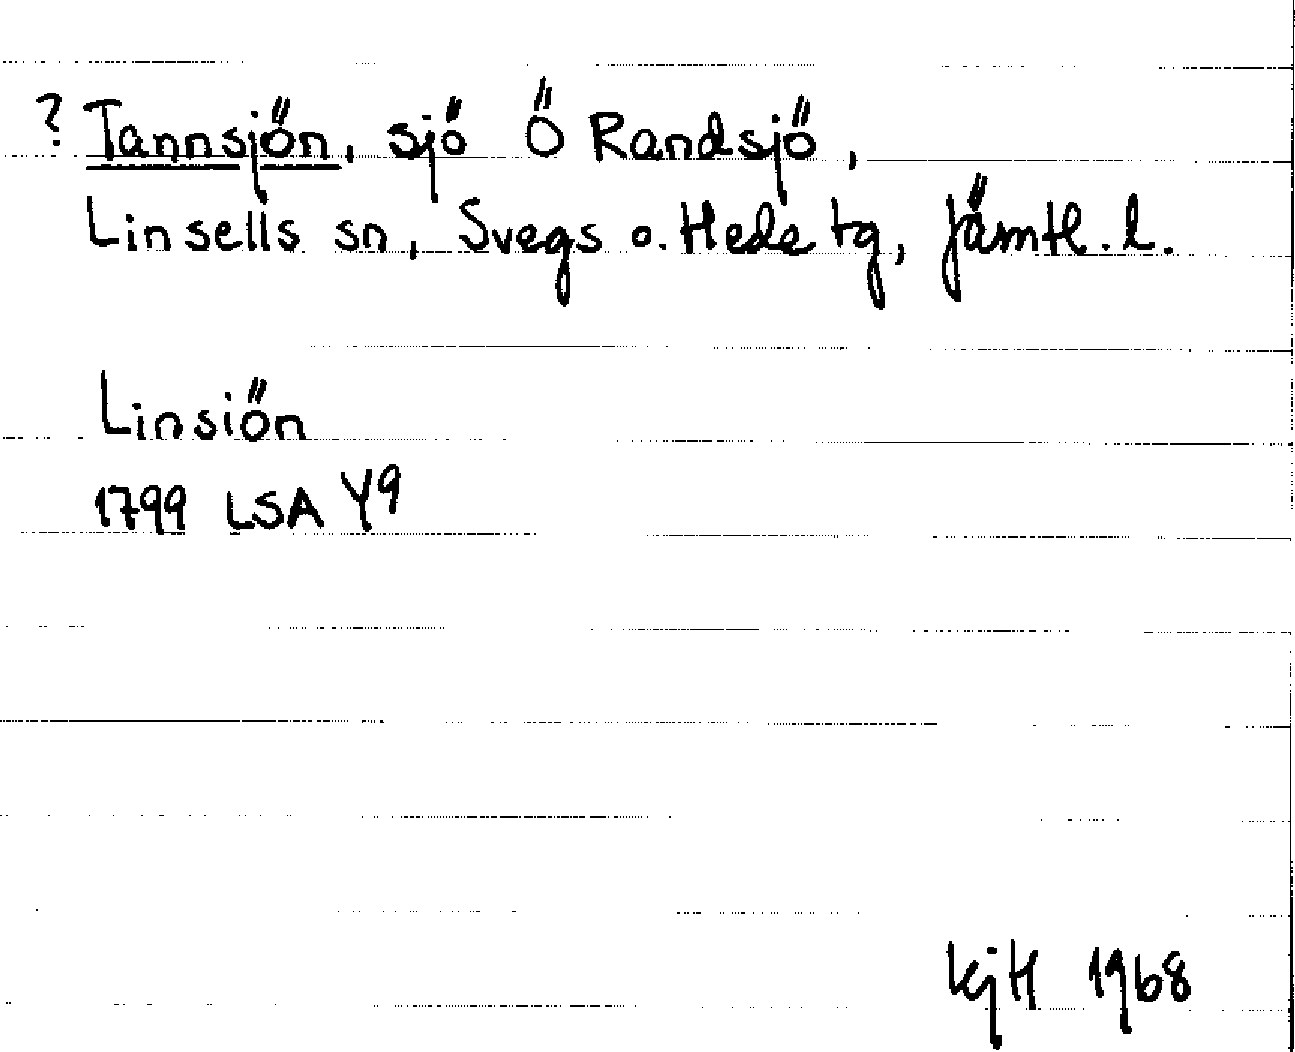 ? Tannsjön, sjö Ö Randsjö,
Linsells sn, Svegs o. Hede tg, Jämtl. l.
Linsiön
1799 LSA Y9
KjH 1968